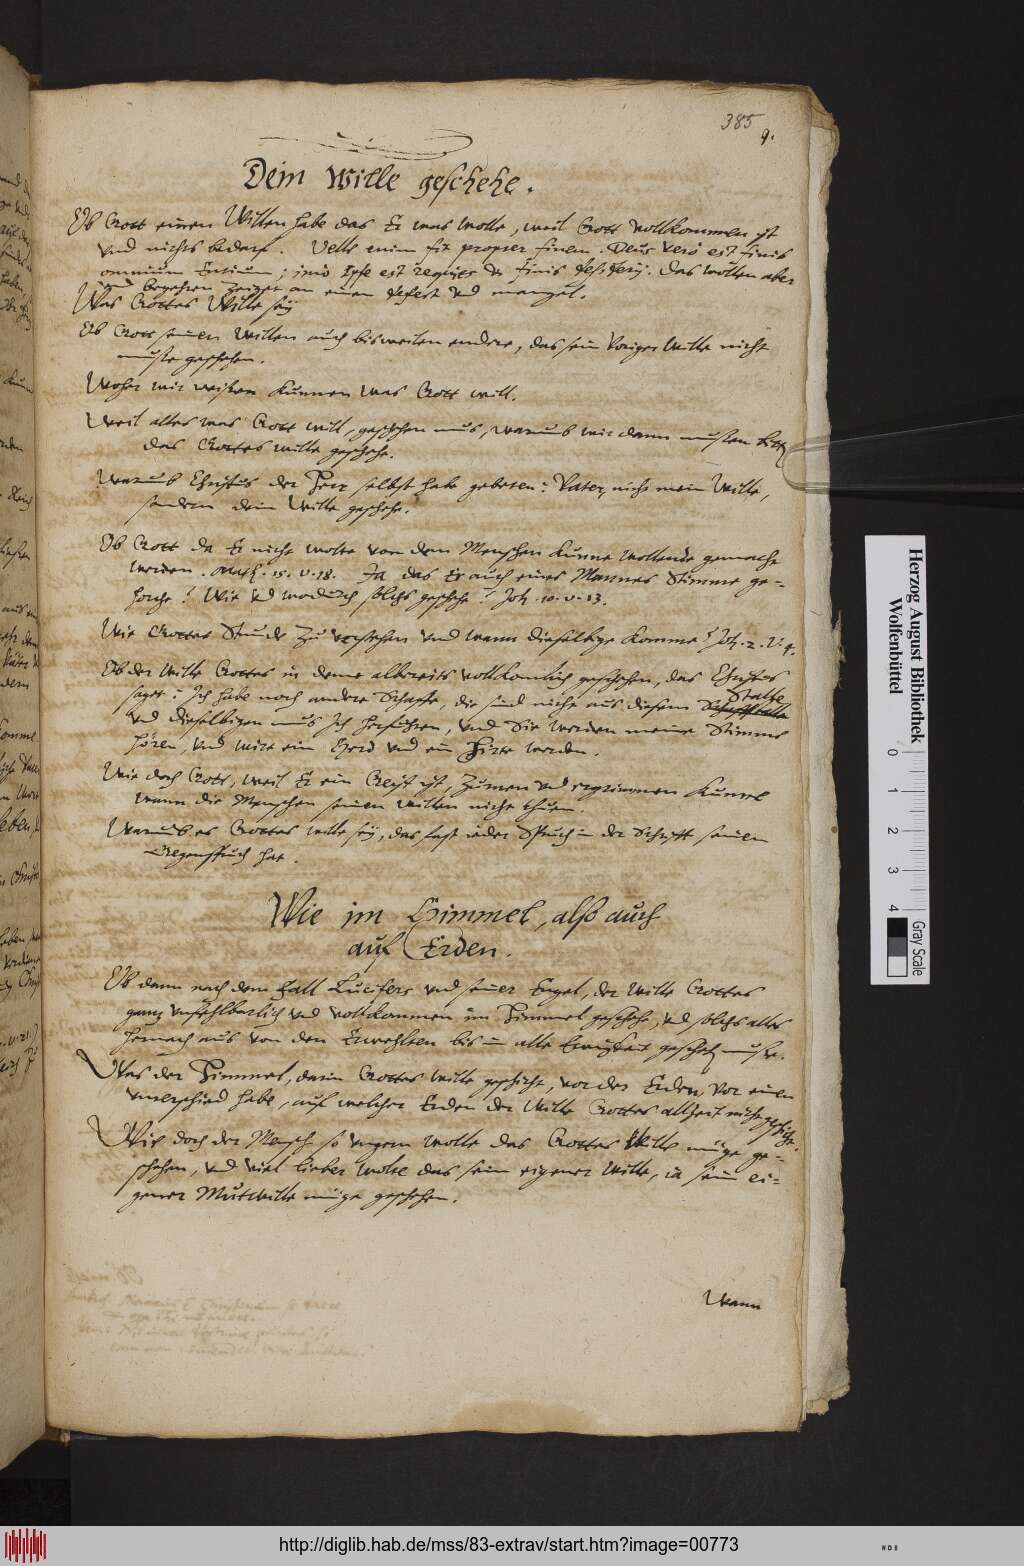 385
9.
Dein Wille geschehe.
Ob Gott einen Willen habe das Er was wolle, weil Gott vollkommen ist
vnd nichts bedarf. Velle enim fit propter finem. Deus vero est finis
omnium Entium; imò Ipse est requies & finis desiderij. das wollen aber
vnd begehren zeiget an einen defect vnd mangel.
Was Gottes Wille sey
Ob Gott seinen Willen auch bisweilen endere, das sein voriger Wille nicht
musse geschehen.
Woher wir wissen kunnen was Gott will.
Weil alles was Gott will, geschehen mus, warumb wir dann mussen bitten
das Gottes wille geschehe.
Warumb Christus der Herr selbst habe gebeten: Vater, nicht mein Wille,
sondern dein Wille geschehe.
Ob Gott da Er nicht wolte von dem Menschen kunne wollende gemacht
werden. Math. 15. v. 28. Ja das Er auch eines Mannes Stimme ge-
horche? Wie vnd wodurch solchs geschehe? Jos. 10. v. 13.
Wie Gottes Stunde zu verstehen vnd wann dieselbige komme? Joh. 2. v. 4.
Ob der Wille Gottes in deme albereits vollkomlich geschehen, das Christus
saget: Ich habe noch andere Schaffe, die sind nicht aus diesem Stalle
vnd dieselbigen mus Ich herfuhren, vnd Sie werden meine Stimme
hören, vnd wirt ein Herd vnd ein Hirte werden.
Wie doch Gott, weil Er ein Geist ist, Zurnen vnd ergrimmen kunne
wann die Menschen seinen willen nicht thuen.
Warumb es Gottes wille sey, das fast jeder Spruch in der Schrifft seinen
Gegenspruch hat.
Wie im Himmel, alß auch
auf Erden.
Ob dann nach dem Fall Lucifers vnd seiner Engel, der Wille Gottes
gantz vnfehlbarlich vnd vollkommen im Himmel geschehe, vnd solchs alles
hernach aus von den Erwehlten bis in alle Ewigkeit gescheh musse.
Was der Himmel, darin Gottes Wille geschicht, vor der Erden, vor einen
vnterschied habe, auf welcher Erden der Wille Gottes alltzeit nicht geschicht.
Wie doch der Mensch so vngern wolle das Gottes Wille müge ge-
schehen, vnd viel lieber wolte das sein eigener Wille, ia sein ei-
gener Mutwille müge geschehen.
Wann
Herzog August Bibliothek
Wolfenbüttel
0 1 2 3 4
Gray Scale
http://diglib.hab.de/mss/83-extrav/start.htm?image=00773